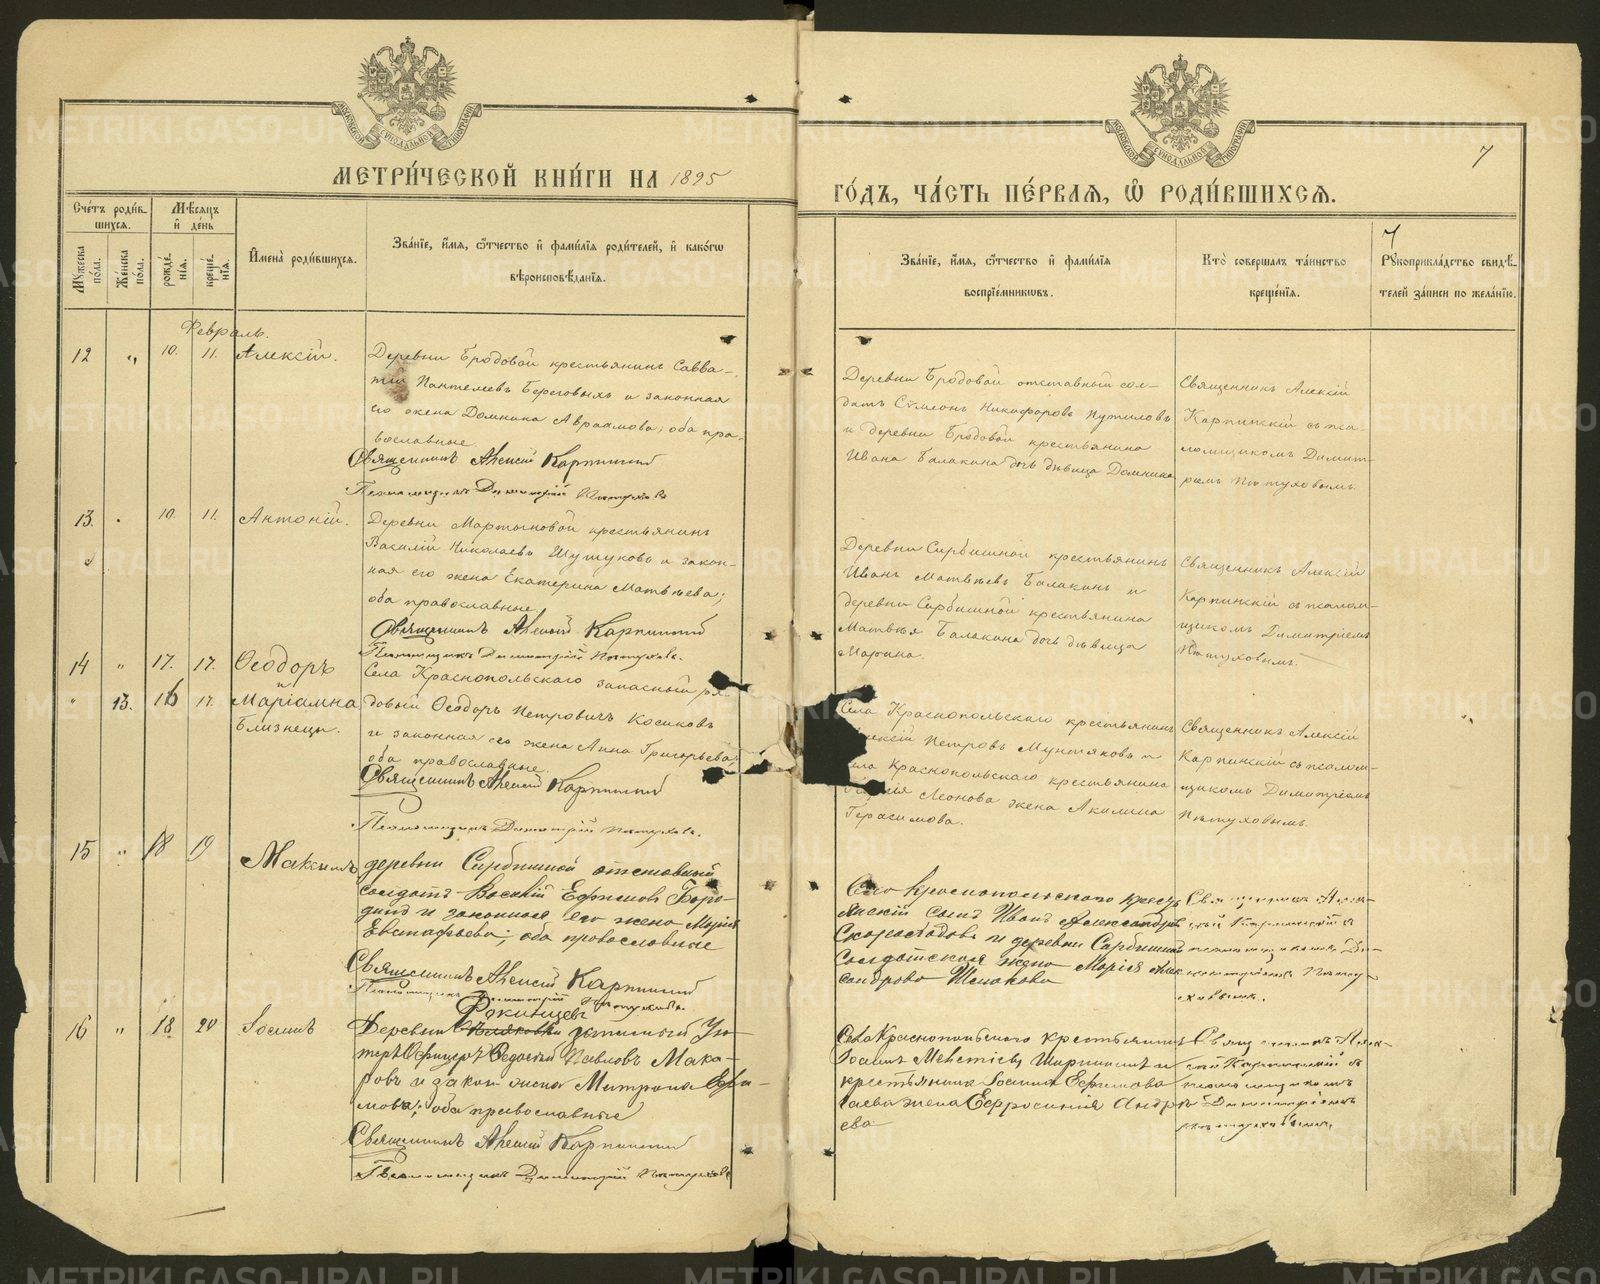 МЕТРИ́ЧЕСКОЙ КНИ́ГИ НА 1895
ГО́ДЪ, ЧА́СТЬ ПЕ́РВАЯ, Ѡ РОДИ́ВШИХСЯ.
7
Сче́тъ роди́в-
шихся.
Мѣсяцъ
и де́нь
Мꙋжеска по́ла.
Же́нска по́ла.
рожде́-
нїя.
креще́-
нїя.
И҆мена̀ роди́вшихся.
Зва́нїе, и҆́мя, ѻ҆́тчество и҆ фами́лїя роди́телей, и҆ како́гѡ
вѣроисповѣ́данїя.
Зва́нїе, и҆́мя, ѻ҆́тчество и҆ фами́лїя
воспрїе́мникѡвъ.
Кто̀ соверша́лъ та́инство
креще́нїя.
7
Рꙋкоприкла́дство свидѣ́-
телей за́писи по жела́нїю.
Февраль.
12 " 10. 11. Алексій.
Деревни Бродовой крестьянинъ Савва-
тій Пантелеевъ Береговыхъ и законная
его жена Домника Авраамова; оба пра-
вославные
Священникъ Алексій Карпинскій
Псаломщикъ Димитрій Пѣтуховъ
Деревни Бродовой отставный сол-
датъ Сѵмеонъ Никифоровъ Путиловъ
и деревни Бродовой крестьянина
Ивана Балакина дочь дѣвица Домника
Священникъ Алексій
Карпинскій съ пса-
ломщикомъ Димит-
ріемъ Пѣтуховымъ.
13. 10. 11. Антоній.
Деревни Мартыновой крестьянинъ
Василій Николаевъ Шутуковъ и закон-
ная его жена Екатерина Матвѣева;
оба православные.
Священникъ Алексій Карпинскій
Псаломщикъ Димитрій Пѣтуховъ.
Деревни Сарбишной крестьянинъ
Иванъ Матвѣевъ Балакинъ и
деревни Сарбишной крестьянина
Матвѣя Балакина дочь дѣвица
Марина.
Священникъ Алексій
Карпинскій съ псалом-
щикомъ Димитріемъ
Пѣтуховымъ.
14 " 17. 17. Ѳеодоръ
и
" 13. 16 17. Маріамна
Близнецы.
Села Краснопольскаго запасный ря-
довый Ѳеодоръ Петровичъ Косиковъ
и законная его жена Анна Григорьева;
оба православные.
Священникъ Алексій Карпинскій
Псаломщикъ Димитрій Пѣтуховъ.
Села Краснопольскаго крестьянинъ
Петровъ и
Краснопольскаго крестьянина
Леонова жена Акилина
Герасимова.
Священникъ Алексій
Карпинскій съ псалом-
щикомъ Димитріемъ
Пѣтуховымъ.
15 " 18 19 Максимъ
деревни Сарбишной отставный
солдатъ Василій Ефимовъ Боро-
динъ и законная его жена Марія
Евстафьева; оба православные
Священникъ Алексій Карпинскій
Псаломщикъ Димитрій Пѣтуховъ.
Села Краснопольскаго кресть-
янскій сынъ Иванъ Александровъ
Скоробогатовъ и деревни Сарбишной
солдатская жена Марія Алек-
сандрова
Священникъ Алек-
сій Карпинскій съ
псаломщикомъ Ди-
митріемъ Пѣту-
ховымъ.
16 " 18 20 Іоаннъ
Фокинцевъ
Деревни запасный Ун-
теръ Офицеръ Ѳедосѣй Павловъ Мака-
ровъ и закон жена Митрона Ефи-
мова; оба православные
Священникъ Алексій Карпинскій
Псаломщикъ Димитрій Пѣтуховъ
Села Краснопольскаго крестьянинъ
Іоаннъ и
крестьянина Іоанна Ефимова
жена Ефросинія Андре-
ева
Священникъ Алек-
сій Карпинскій съ
псаломщикомъ
Димитріемъ
Пѣтуховымъ.